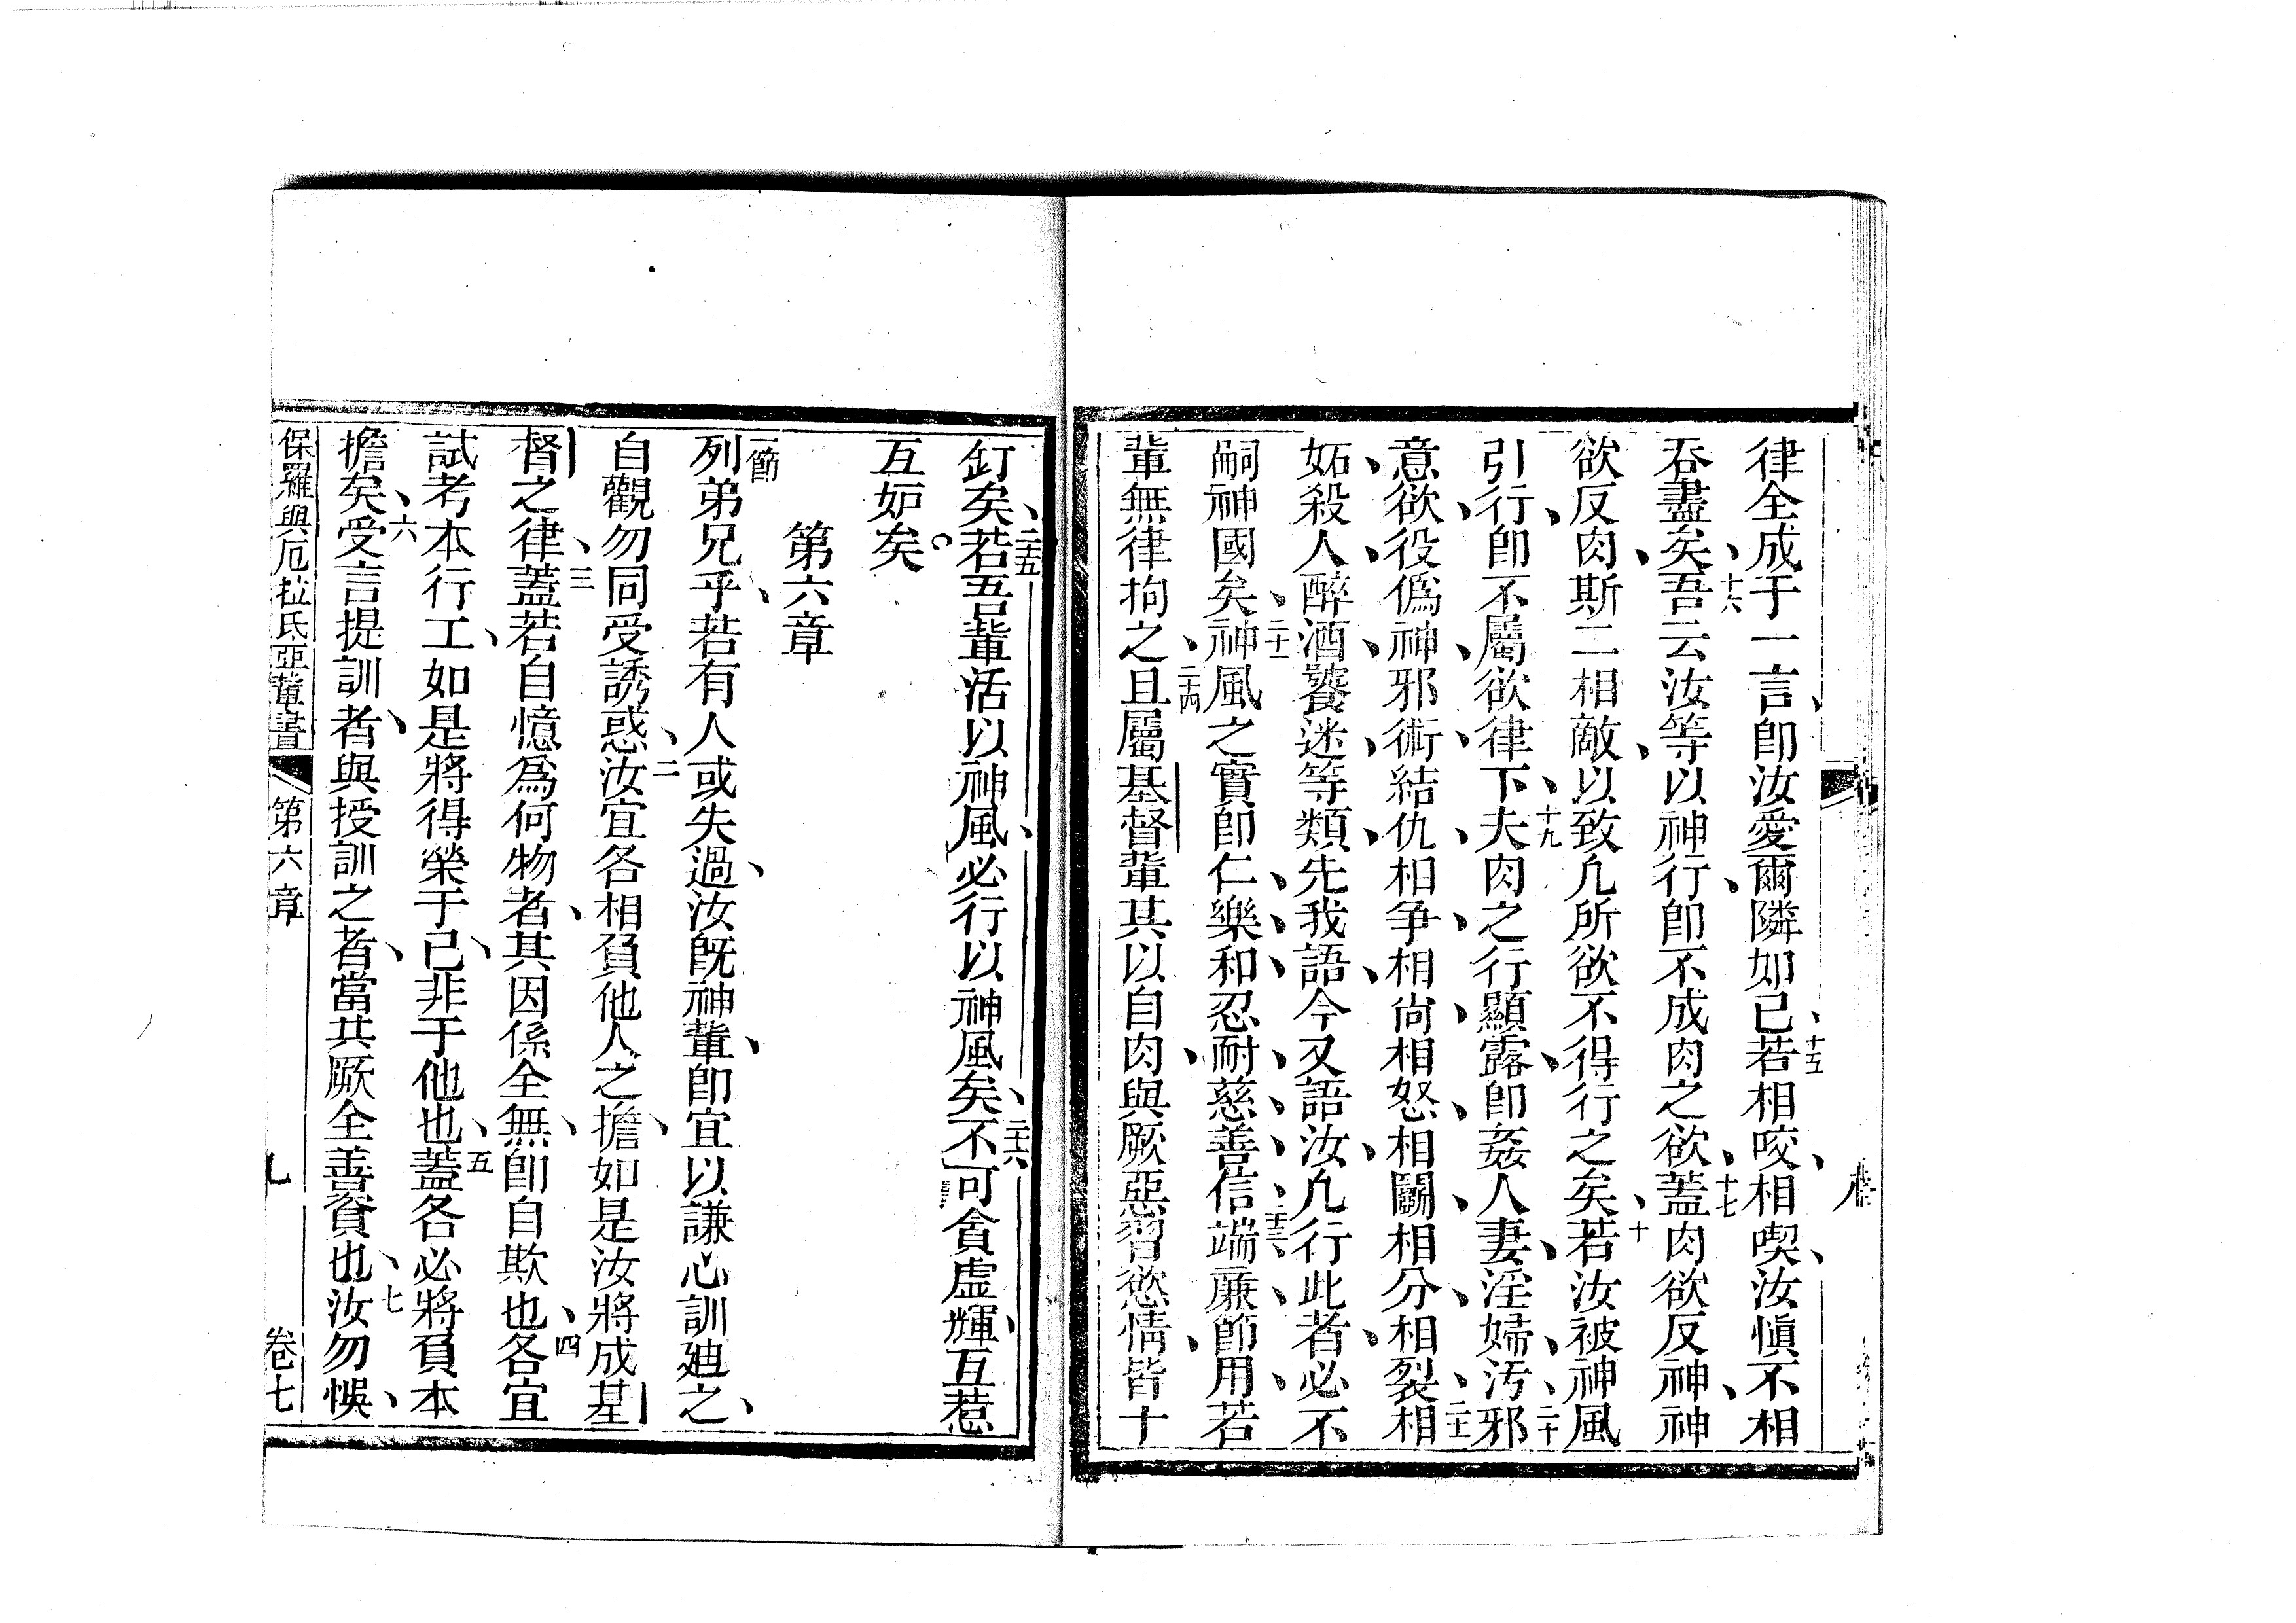 律全成于一言、即汝愛爾隣如已、十五若相咬、相喫、汝愼不相
吞盡矣、十六吾云汝等以神行、即不成肉之欲、十七蓋肉欲反神、神
欲反肉、斯二相敵、以致凢所欲不得行之矣、十若汝被神風
引行、即不屬欲律下、十九夫肉之行顯露、即姦人妻、淫婦、汚、二十邪
意欲、役偽神、邪術、結仇、相争、相尚、相怒、相鬬、相分、相裂、二十一相
妬、殺人、醉酒、饕迷、等類、先我語、今又語汝、凢行此者、必不
嗣神國矣、二十二神風之實即仁、樂、和、忍耐、慈、善、信、二十三端、廉、節用、若
輩無律拘之、二十四且屬基督輩其以自肉、與厥惡習慾情、皆十
釘矣、二十五若吾輩活以神風、必行以神風矣、二十六不可貪虛輝、互惹
互妬矣。
第六章
一節列弟兄乎、若有人或失過、汝既神輩、即宜以謙心訓廸之、
自觀勿同受誘惑、二汝宜各相負他人之擔、如是汝將成基
督之律、三蓋若自憶爲何物者、其因係全無、即自欺也、四各宜
試考本行工、如是將得榮于己、非于他也、五蓋各必將負本
擔矣、六受言提訓者、與授訓之者、當共厥全善貲也、七汝勿悞、
保羅與厄拉氏亞輩書 第六章 九 卷七